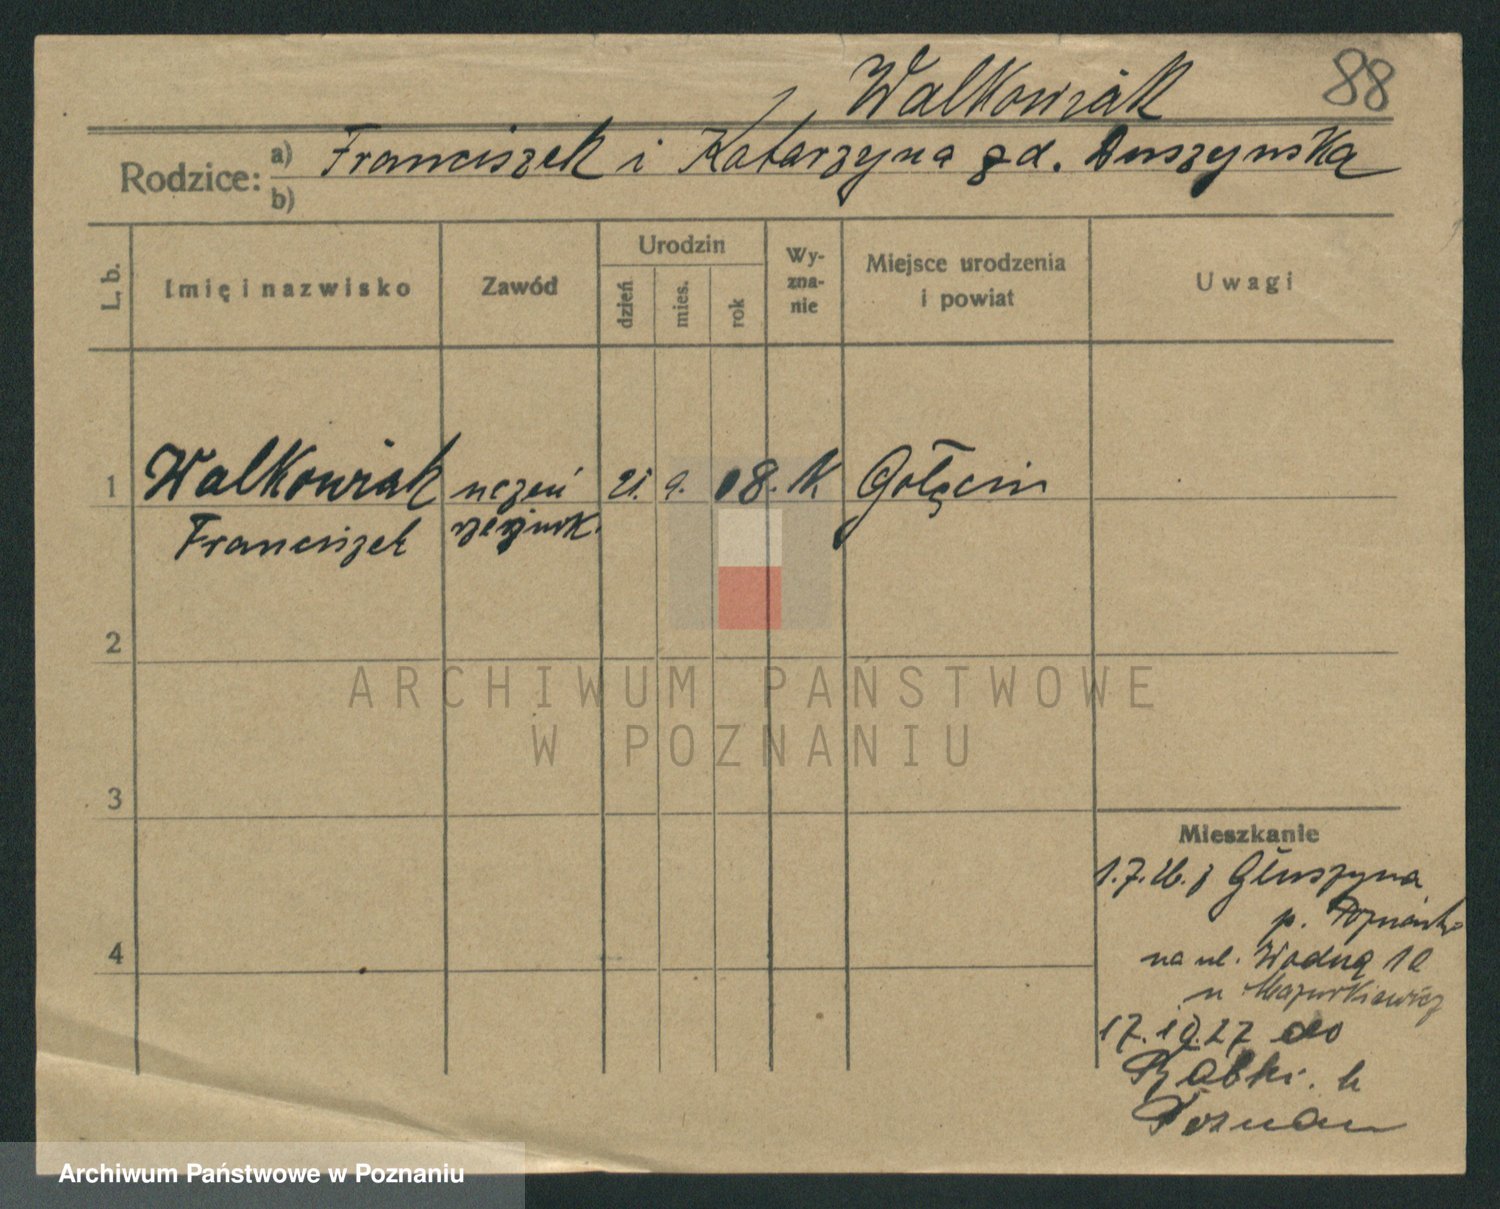 Walkowiak 88
Rodzice: a) Franciszek i Katarzyna zd. Duszyńska
b)
L. b. Imię i nazwisko Zawód Urodzin dzień mies. rok Wyznanie Miejsce urodzenia i powiat Uwagi
1 Walkowiak uczeń 21. 9. 08. K Gołęcin
Franciszek rzeźnick.
2
ARCHIWUM PAŃSTWOWE
W POZNANIU
3
Mieszkanie
1.7.26. z Głuszyna
p. Poznańsk.
4
na ul. Wodną 12
u Mazurkiewicz
17.10.27 do
Babki. k
Poznan
Archiwum Państwowe w Poznaniu